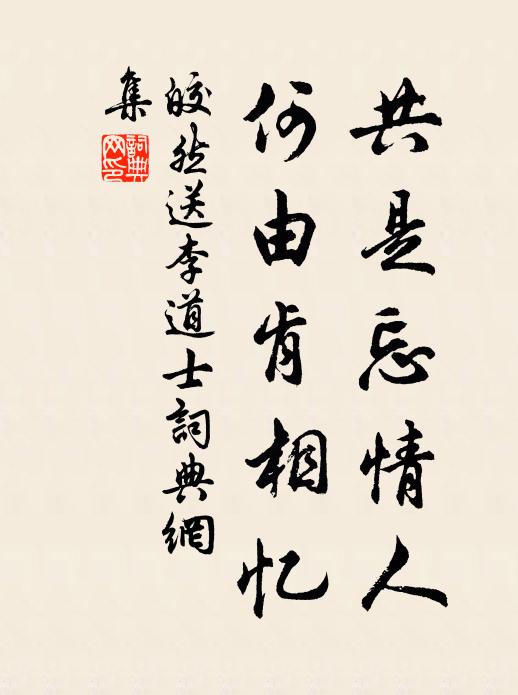 共是忘情人
何由肯相忆
皎然送李道士詞典網
集
詞典
网印